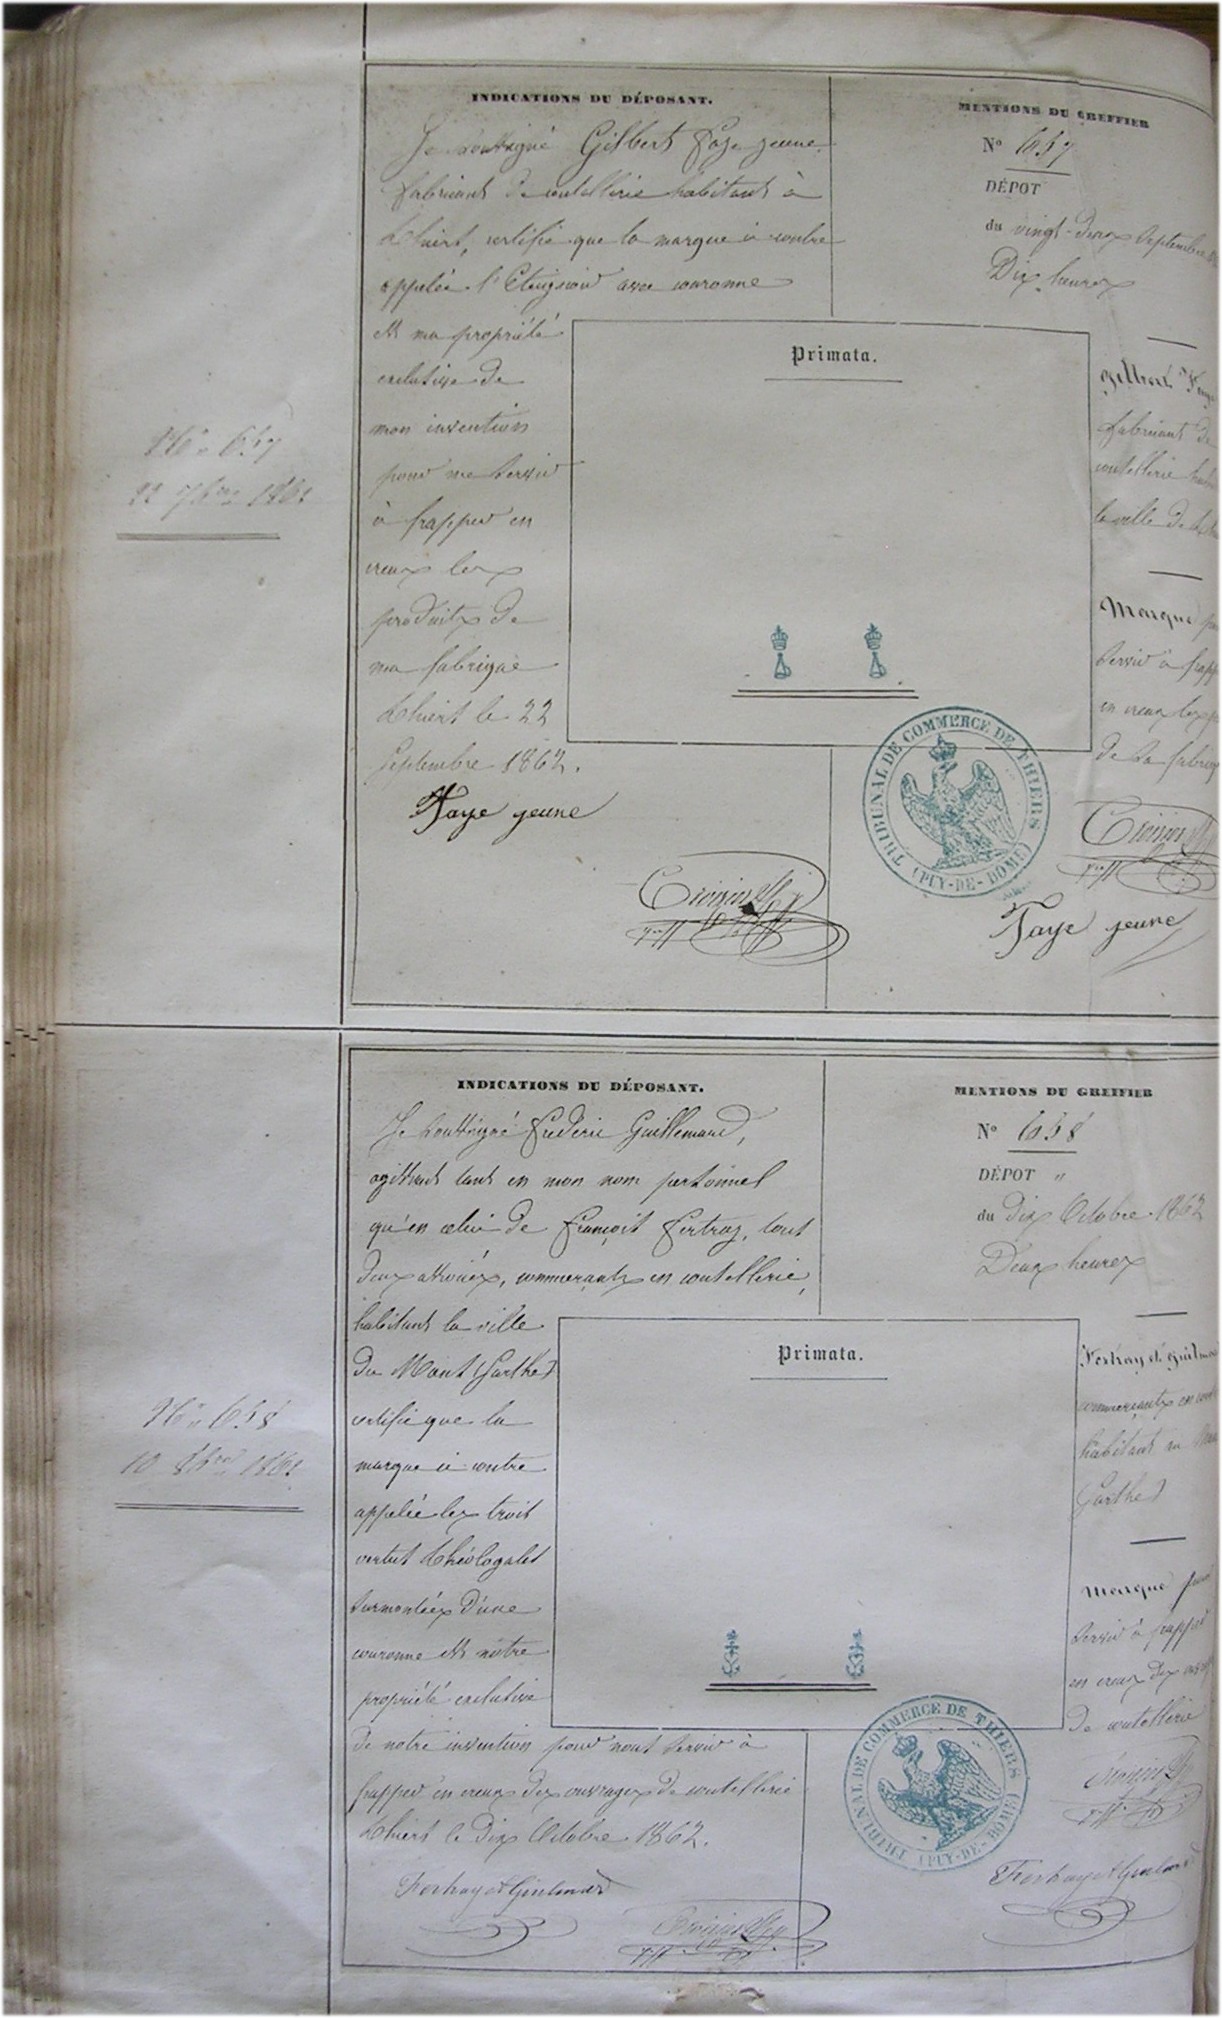 INDICATIONS DU DÉPOSANT.
Je soussigné Gilbert Faye jeune
fabricant de coutellerie habitant à
Thiers, certifie que la marque ci contre
appelée l'Eteignoir avec couronne
est ma propriété
exclusive de
mon invention
pour me servir
à frapper en
creux les
produits de
ma fabrique
Thiers le 22
Septembre 1862.
Faye jeune
MENTIONS DU GREFFIER
N° 657
DÉPOT
du vingt-deux Septembre
Dix heures
Primata.
Gilbert
fabricant de
coutellerie
la ville de
Marque
servir à
en creux les
de sa
TRIBUNAL DE COMMERCE DE THIERS
(PUY-DE-DOME)
Faye jeune
N° 657
22 7bre 1862
INDICATIONS DU DÉPOSANT.
Je soussigné Frédéric Guillemard,
agissant tant en mon nom personnel
qu'en celui de François Fertray, tous
deux associés, commerçants en coutellerie,
habitant la ville
du Mans (Sarthe)
certifie que la
marque ci contre
appelée les trois
vertus théologales
surmontées d'une
couronne est notre
propriété exclusive
de notre invention pour nous servir à
frapper en creux des ouvrages de coutellerie
Thiers le dix Octobre 1862.
MENTIONS DU GREFFIER
N° 658
DÉPOT "
du dix Octobre 1862
Deux heures
Primata.
commerçants en
habitant au
Sarthe)
Marque pour
servir à frapper
en creux des
de coutellerie
TRIBUNAL DE COMMERCE DE THIERS
(PUY-DE-DOME)
N° 658
10 8bre 1862